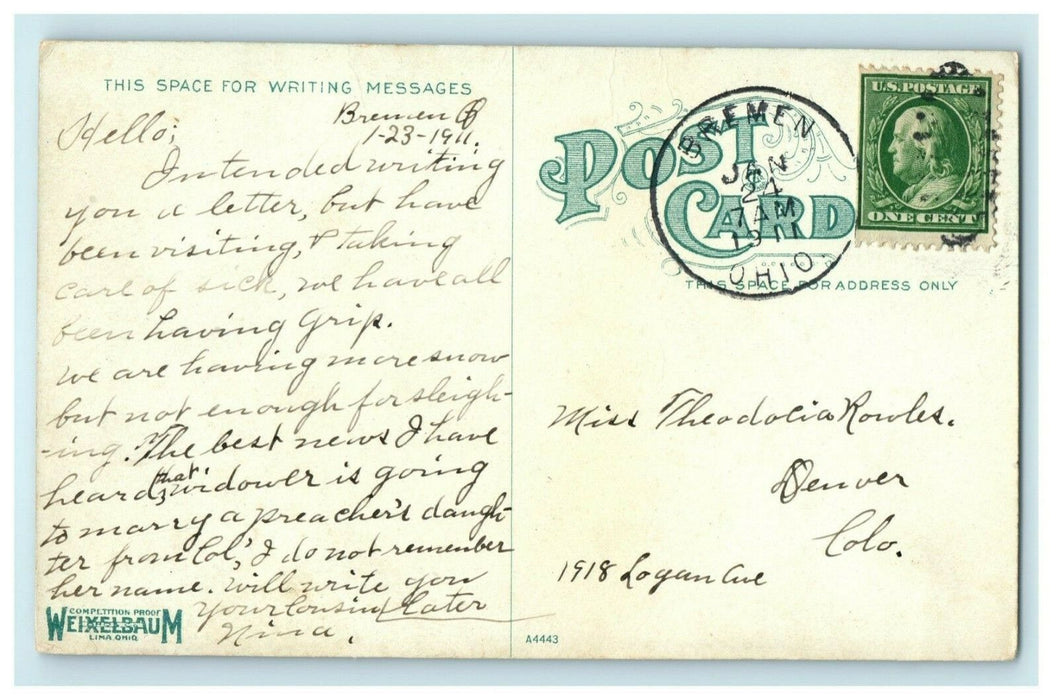 THIS SPACE FOR WRITING MESSAGES
Bremen O
1-23-1911.
Hello;
Intended writing
you a letter, but have
been visiting, & taking
care of sick, we have all
been having Grip.
we are having more snow
but not enough for sleigh-
-ing. The best news I have
heard, that widower is going
to marry a preacher's daugh-
ter from Col', I do not remember
her name. will write you
Later
Your Cousin
Nina.
COMPETITION PROOF
WEIXELBAUM
LIMA, OHIO
POST CARD
BREMEN
JAN
24
7 AM
1911
OHIO.
U.S. POSTAGE
ONE CENT
THIS SPACE FOR ADDRESS ONLY
Miss Theodocia Rowles.
Denver
Colo.
1918 Logan Ave
A4443